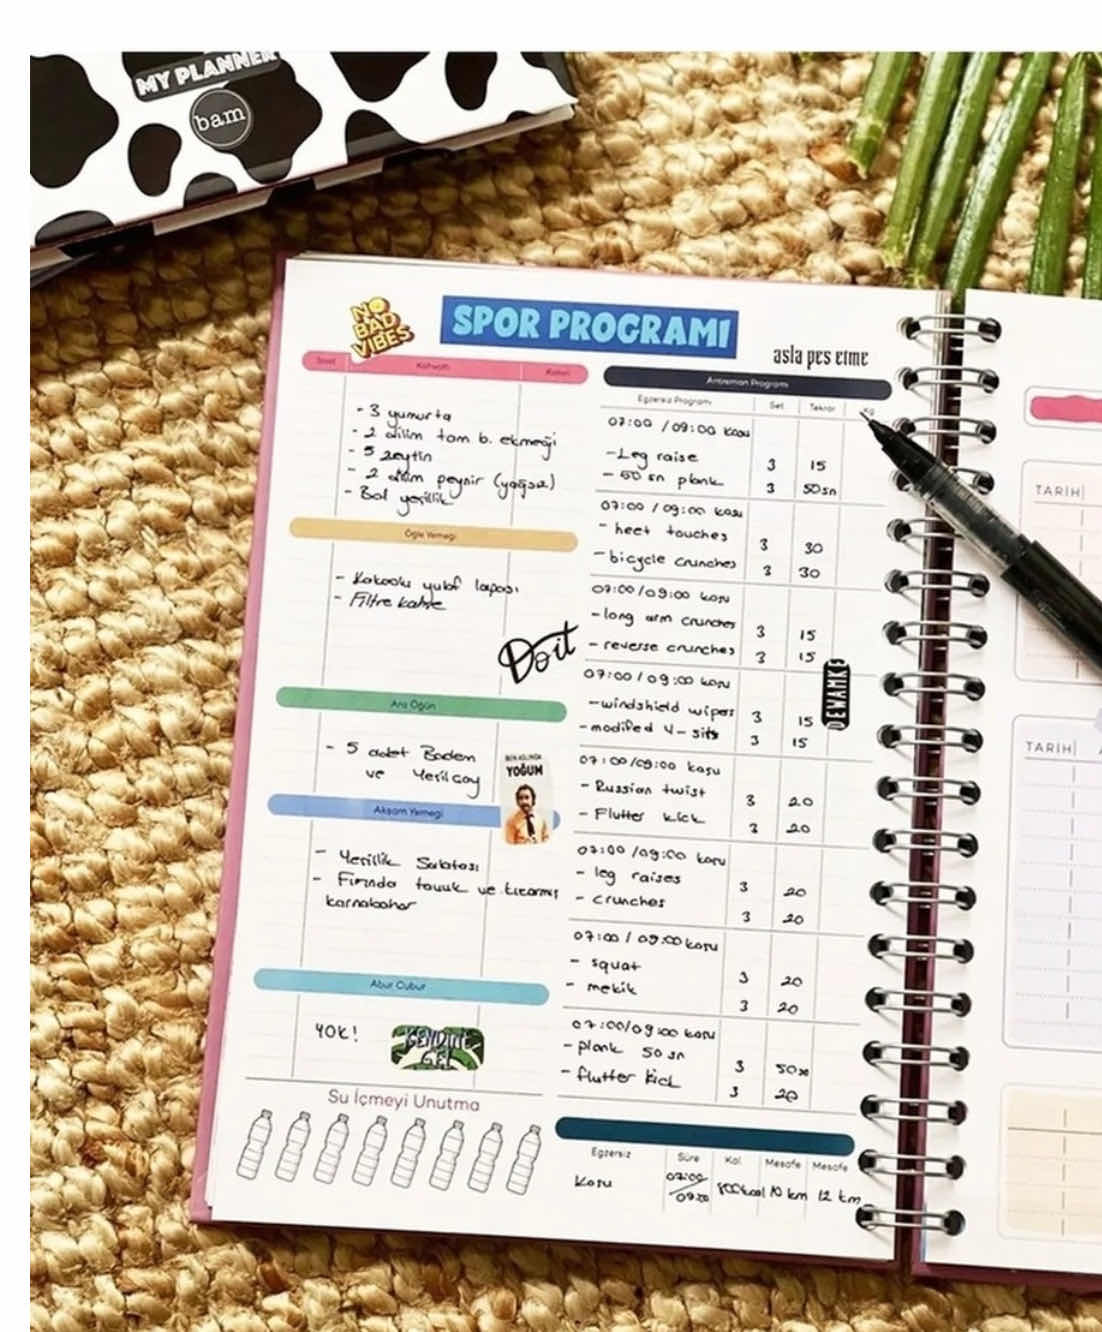 MY PLANNER
bam
NO
BAD
VIBES
SPOR PROGRAMI
asla pes etme
Saat Kahvaltı Kalori
- 3 yumurta
- 2 dilim tam b. ekmeği
- 5 zeytin
- 2 dilim peynir (yağsız)
- Bol yeşillik
Öğle Yemeği
- Kakaolu yulaf lapası
- Filtre kahve
Do it
Ara Öğün
- 5 adet Badem
ve Yeşilçay
YOĞUM
Akşam Yemeği
- Yeşillik Salatası
- Fırında tavuk ve kızarmış
karnabahar
Abur Cubur
YOK!
KENDİNE
GEL
Su İçmeyi Unutma
Antreman Programı
Egzersiz Programı Set Tekrar Kg
07:00 / 09:00 koşu
- Leg raise 3 15
- 50 sn plank 3 50sn
07:00 / 09:00 koşu
- heet touches 3 30
- bicycle crunches 3 30
07:00 / 09:00 koşu
- long arm crunches 3 15
- reverse crunches 3 15
07:00 / 09:00 koşu
- windshield wipers 3 15
- modified V- sits 3 15
DEVAMKE
07:00 / 09:00 koşu
- Russian twist 3 20
- Flutter kick 3 20
07:00 / 09:00 koşu
- leg raises 3 20
- crunches 3 20
07:00 / 09:00 koşu
- squat 3 20
- mekik 3 20
07:00/09:00 koşu
- plank 50 sn 3 50sn
- flutter kick 3 20
Egzersiz Süre Kal. Mesafe Mesafe
Koşu 07:00/09:00 800kcal 10 km 12 km
TARİH
TARİH